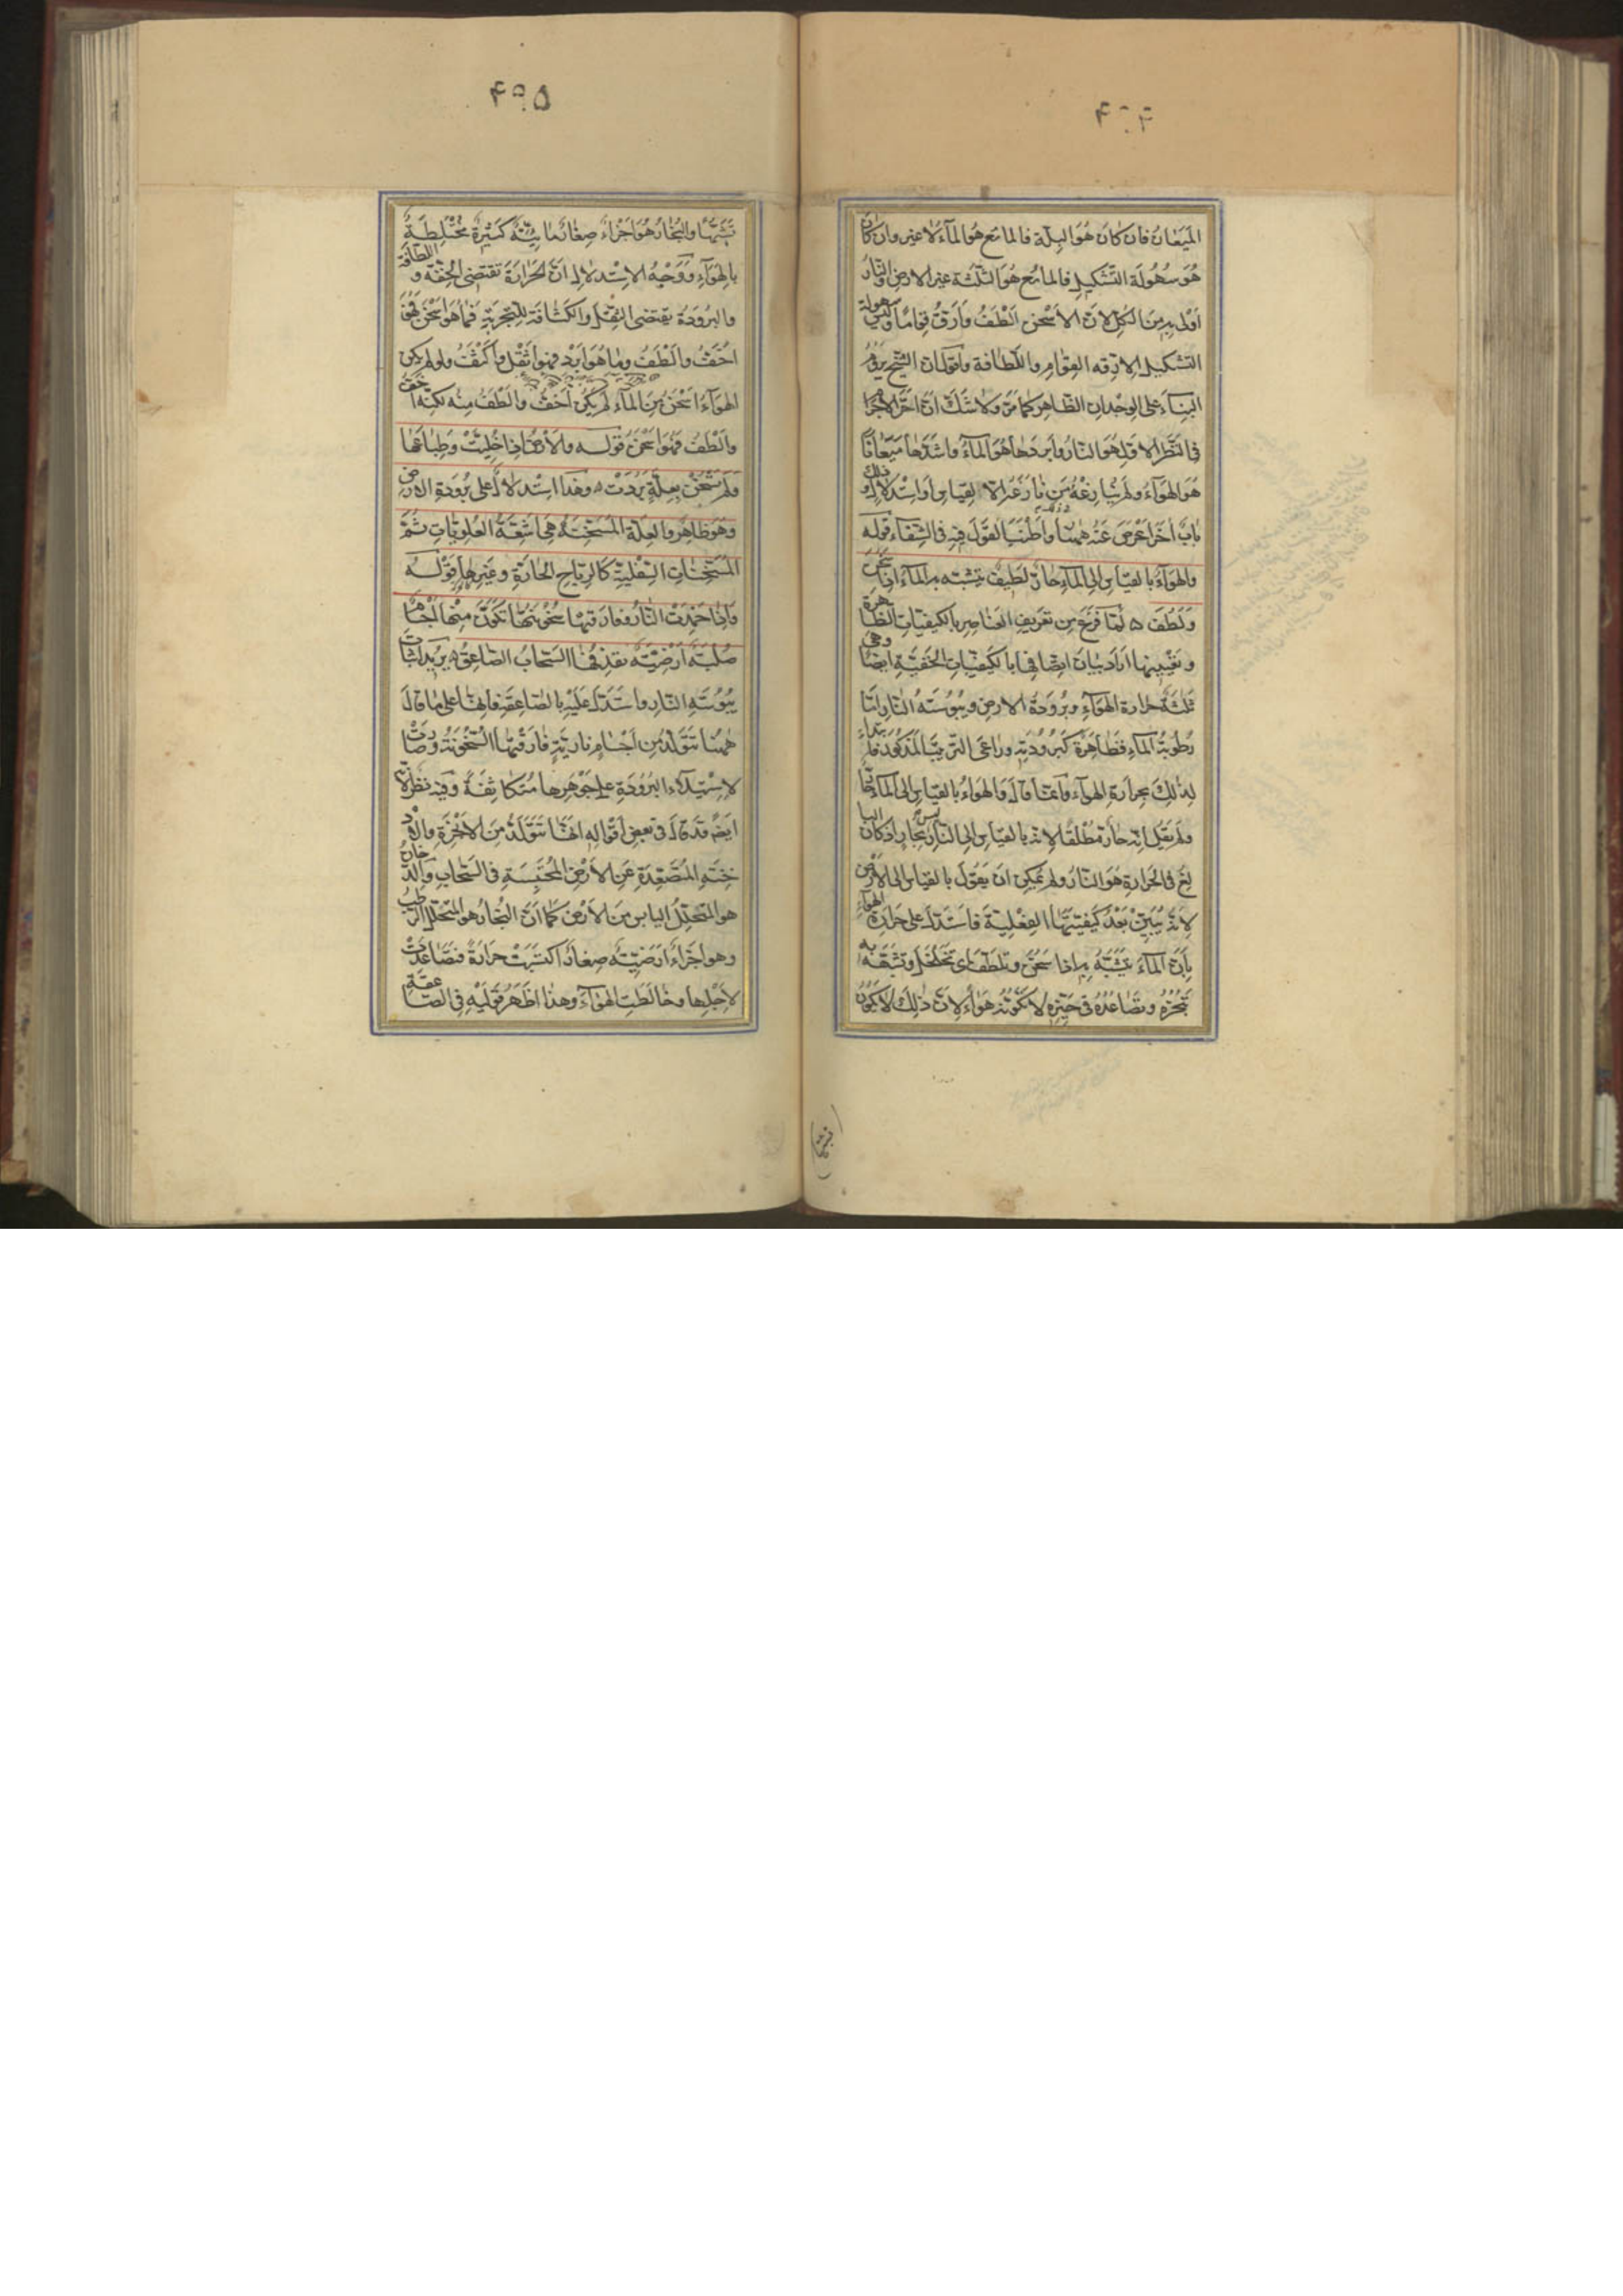 ۴۹۴
الميعان فان كان هو البلة فالمائع هو الماء لا غير وان كان
هو سهولة التشكيل فالمائع هو الثلثة غير الارض والنار
اولى به من الكل لان الاسخن الطف وارق قواما وليس سهولة
التشكيل الا لرقة القوام واللطافة واقول ان الشيخ يروم
البناء على الوجدان الظاهر كما مر ولا شك ان احر الاجرام
فى النظر الاول هو النار وابردها هو الماء واشدها ميعانا
هو الهواء ولم ينازعه من نازعه الا لقياس او استدلال وذلك
باب آخر اعرض عنه ههنا واطنب القول فيه فى الشفاء قوله
والهواء بالقياس الى الماء حار لطيف يتشبه به الماء اذا سخن
ولطف ه لما فرغ من تعريف العناصر بالكيفيات الظاهرة
وتعيينها اراد بيان اتصافها بالكيفيات الخفية ايضا وهى
ثلثة حرارة الهواء وبرودة الارض ويبوسة النار اما
رطوبة الماء فظاهرة كبرودته وراعى الترتيب المذكور فابتداء
لذلك بحرارة الهواء وانما قال والهواء بالقياس الى الماء حار
ولم يقل انه حار مطلقا لانه بالقياس الى النار ليس بحار اذ كان البا
لغ فى الحرارة هو النار ولم يمكن ان يقول بالقياس الى الارض
لانه لم يبين بعد كيفيتها الفعلية فاستدل على حرارة الهواء
بان الماء يتشبه به اذا سخن وتلطف اى تخلخل وتشبهه به
تبخره وتصاعده فى حيزه لا تكونه هواء لان ذلك لا يكون
تشبها
۴۹۵
تشبها والبخار هو اجزاء صغار مائية كثيرة مختلطة
بالهواء ووجه الاستدلال ان الحرارة تقتضى الخفة و اللطافة
والبرودة يقتضى الثقل والكثافة للتجربة فما هو اسخن فهو
اخف والطف وما هو ابرد فهو اثقل واكثف ولو لم يكن
الهواء اسخن من الماء لم يكن اخف والطف منه لكنه اخف
والطف فهو اسخن قوله والارض اذا خليت وطباعها
ولم تسخن بعلة بردت ه وهذا استدلال على برودة الارض
وهو ظاهر والعلة المسخنة هى اشعة العلويات ثم
المسخنات السفلية كالرياح الحارة وغيرها قوله
واذا خمدت النار وفارقتها سخونتها تكون منها اجسام
صلبة ارضية يقذفها السحاب الصاعق ه يريد اثبات
يبوسة النار واستدل عليه بالصاعقة فانها على ما قال
ههنا تتولد من اجسام نارية فارقتها السخونة وصارت
لاستيلاء البرودة على جوهرها متكاثفة وفيه نظر لانه
ايضا قد قال فى بعض اقواله انها تتولد من الابخرة والاد
خنة المتصعدة عن الارض المحتبسة فى السحاب والدخان
هو المتحلل اليابس من الارض كما ان البخار هو المتحلل الرطب
وهو اجزاء ارضية صغار اكتسبت حرارة فتصاعدت
لاجلها وخالطت الهواء وهذا اظهر قوليه فى الصاعقة